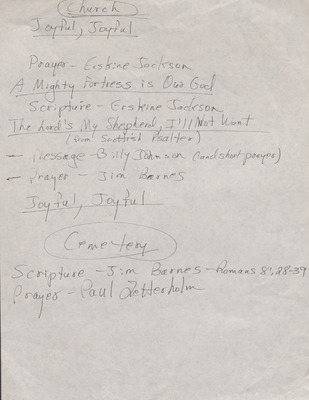 Church
Joyful, Joyful
Prayer - Erskine Jackson
A Mighty Fortress is Our God
Scripture - Erskine Jackson
The Lord's My Shepherd, I'll Not Want
(from Scottish Psalter)
- Message - Billy Johnson (and short prayer)
- Prayer - Jim Barnes
Joyful, Joyful
Cemetery
Scripture - Jim Barnes - Romans 8:28-39
Prayer - Paul Zetterholm